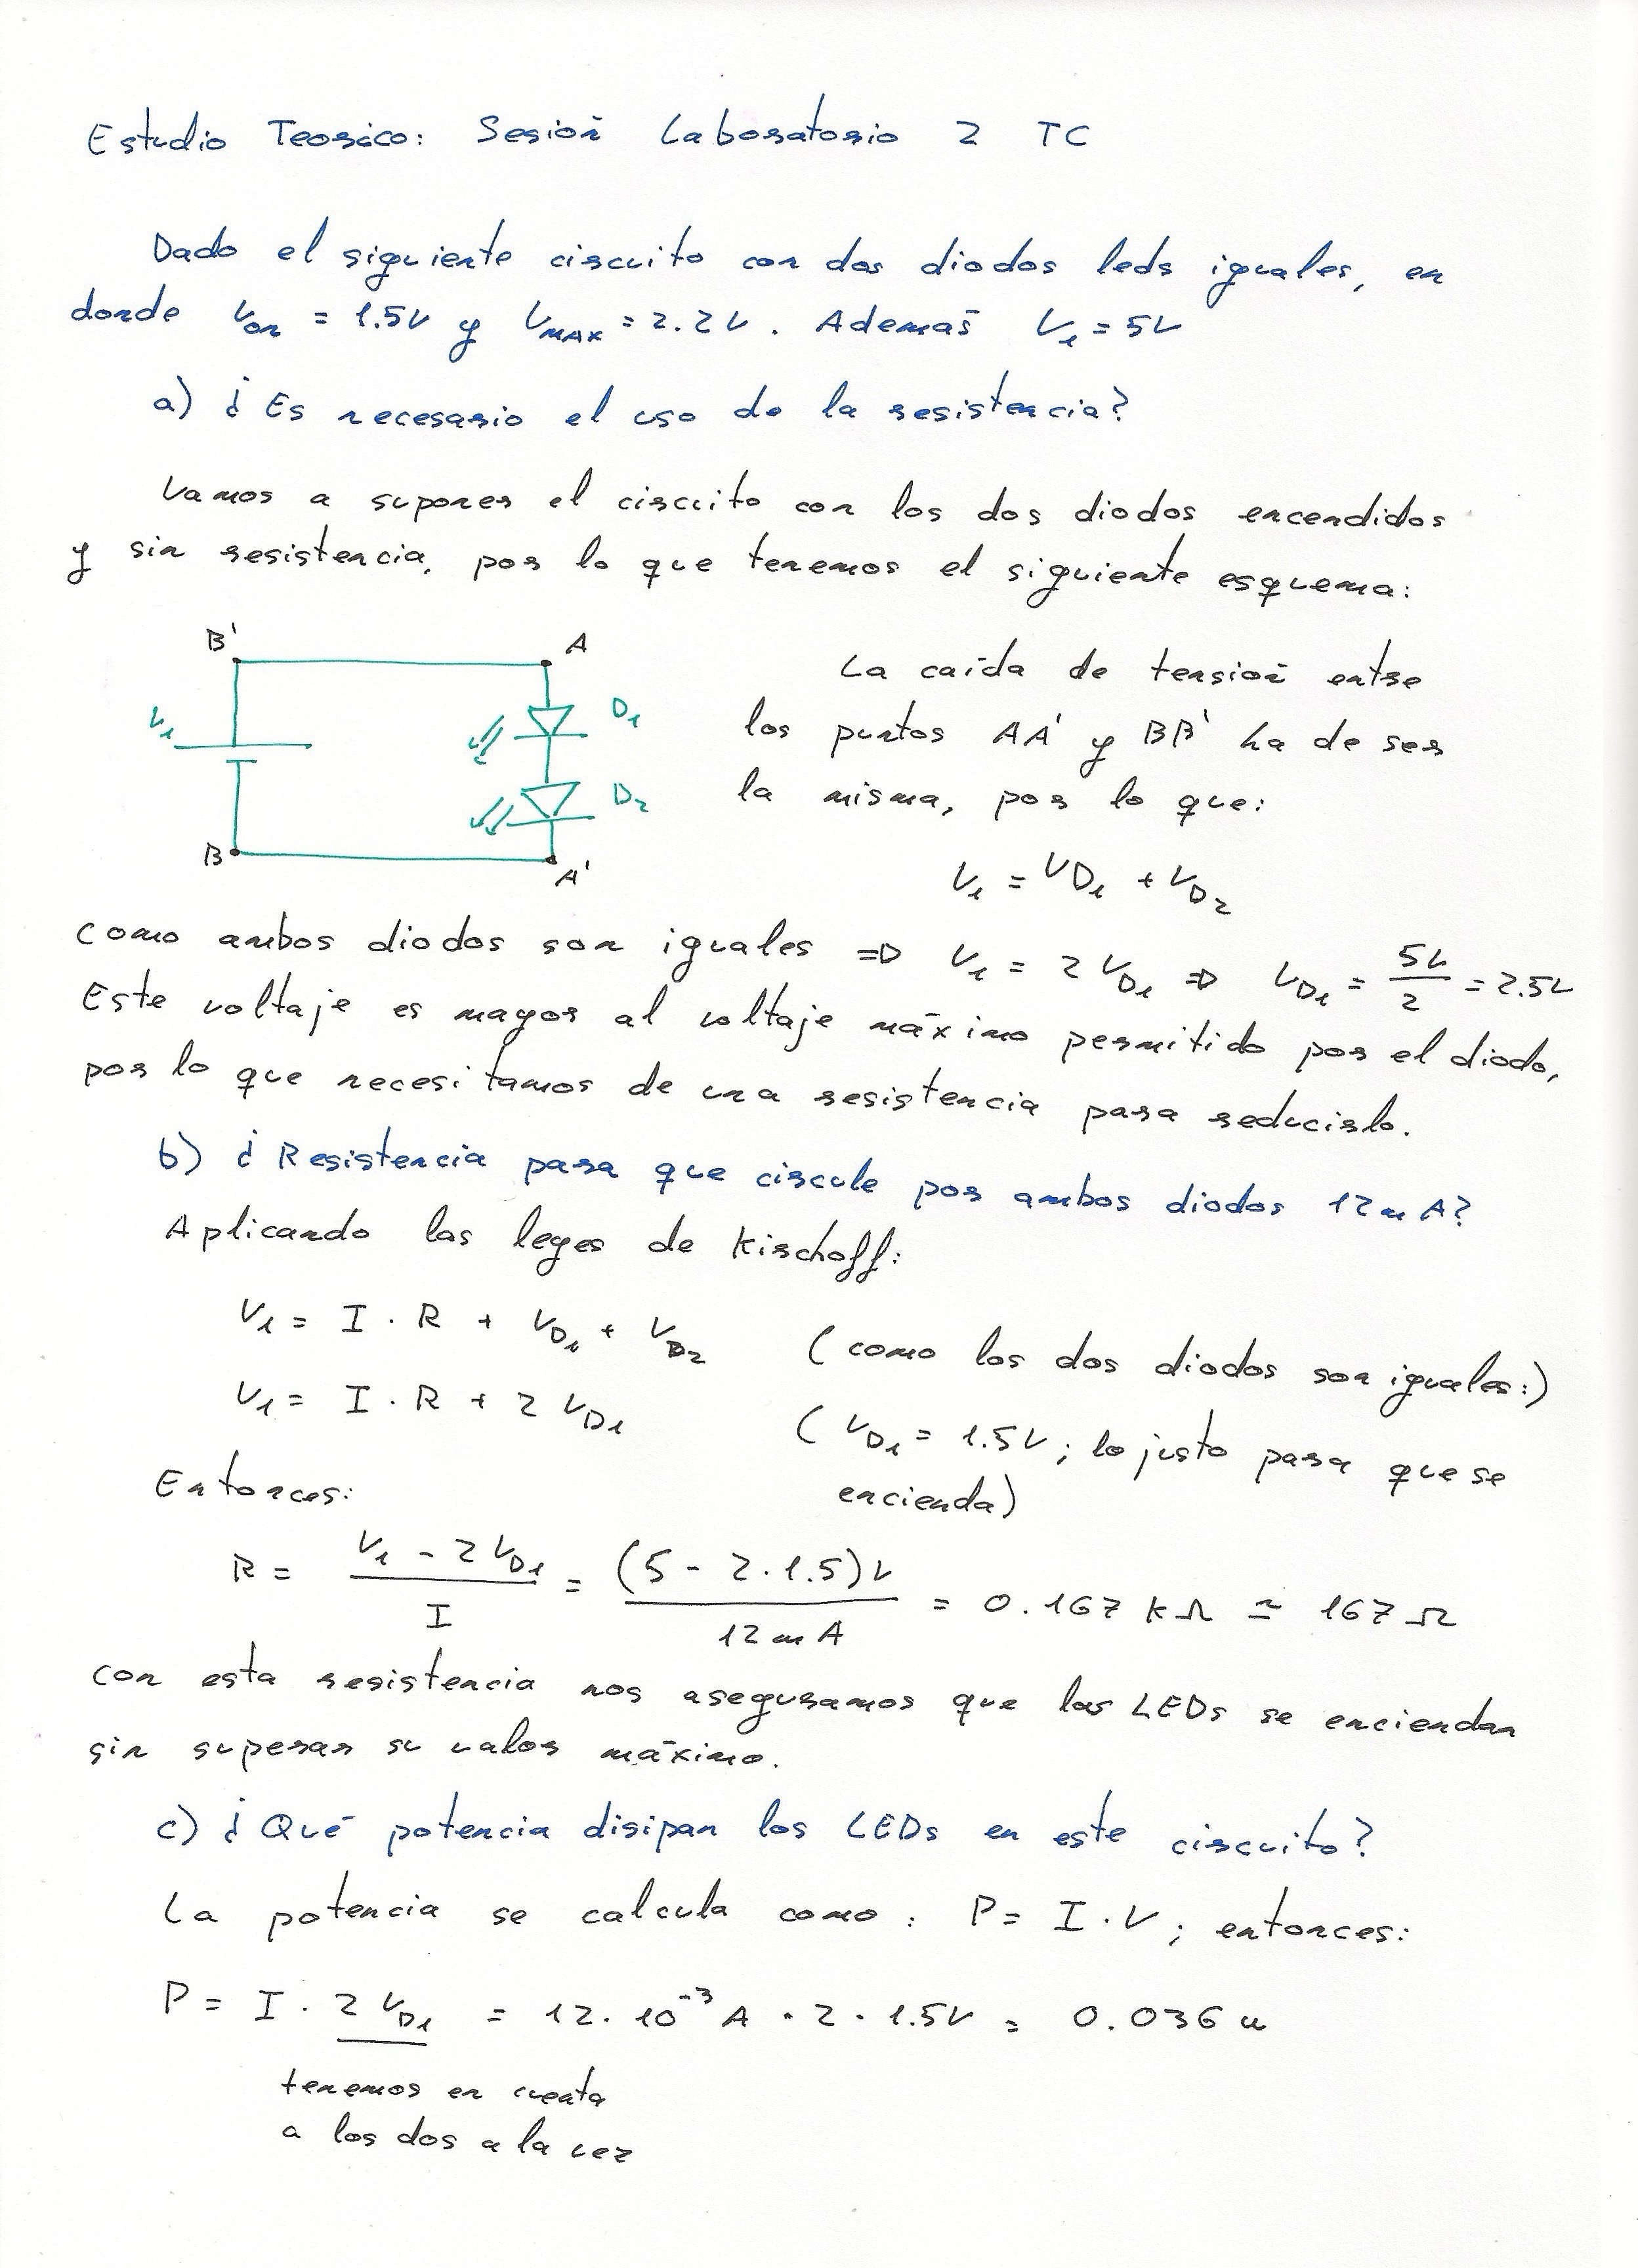 Estudio Teorico: Sesión Laboratorio 2 TC
Dado el siguiente circuito con dos diodos leds iguales, en
donde Von = 1.5V y VMAX = 2.2V. Además V1 = 5V
a) ¿Es necesario el uso de la resistencia?
Vamos a suponer el circuito con los dos diodos encendidos
y sin resistencia, por lo que tenemos el siguiente esquema:
B'
A
V1
D1
D2
B
A'
La caída de tensión entre
los puntos AA' y BB' ha de ser
la misma, por lo que:
V1 = VD1 + VD2
como ambos diodos son iguales => V1 = 2 VD1 => VD1 = 5V/2 = 2.5V
Este voltaje es mayor al voltaje máximo permitido por el diodo,
por lo que necesitamos de una resistencia para reducirlo.
b) ¿Resistencia para que circule por ambos diodos 12mA?
Aplicando las leyes de Kirchoff:
V1 = I · R + VD1 + VD2 (como los dos diodos son iguales:)
V1 = I · R + 2 VD1 (VD1 = 1.5V; lo justo para que se
encienda)
Entonces:
R = (V1 - 2VD1)/I = (5 - 2·1.5)V/12mA = 0.167 KΩ ≃ 167 Ω
con esta resistencia nos aseguramos que los LEDs se enciendan
sin superar su valor máximo.
c) ¿Qué potencia disipan los LEDs en este circuito?
La potencia se calcula como: P = I·V; entonces:
P = I · 2 VD1 = 12·10⁻³ A · 2 · 1.5V = 0.036 w
tenemos en cuenta
a los dos a la vez